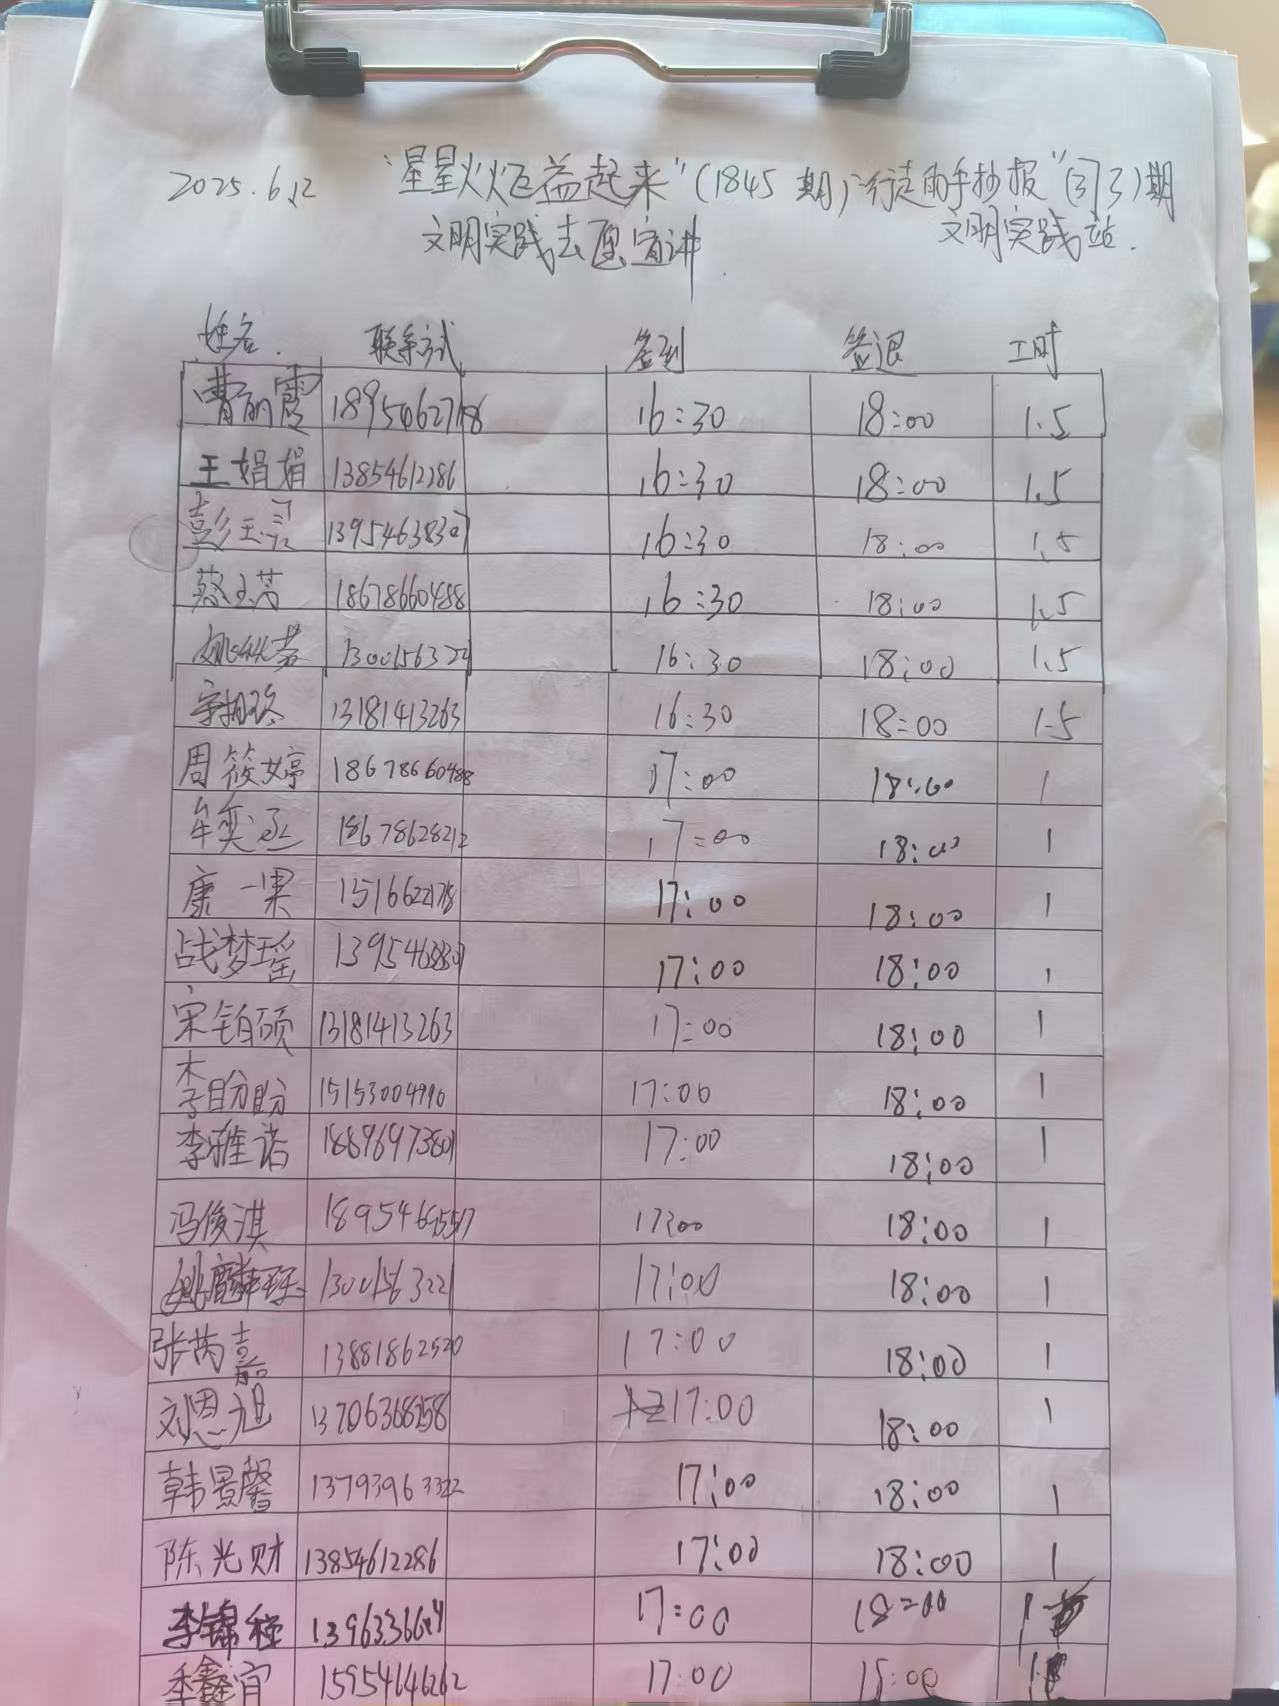 2025.6.12 "星星火炬益起来"(1845期)"行走的手抄报"(373)期
文明实践志愿宣讲 文明实践站.
姓名. 联系方式 签到 签退 工时
曹丽霞 18954627186 16:30 18:00 1.5
王娟娟 13854612286 16:30 18:00 1.5
彭玉灵 13954638307 16:30 18:00 1.5
蔡玉芳 18678660488 16:30 18:00 1.5
姚 13001563221 16:30 18:00 1.5
13181413263 16:30 18:00 1.5
周筱婷 18678660488 17:00 18:00 1
牟奕丞 18678628212 17:00 18:00 1
康一果 17:00 18:00 1
战梦瑶 17:00 18:00 1
宋铂硕 13181413263 17:00 18:00 1
李盼盼 17:00 18:00 1
李雅诺 18896973801 17:00 18:00 1
冯俊淇 17:00 18:00 1
姚麟 13001563221 17:00 18:00 1
张芮嘉 13881862520 17:00 18:00 1
刘恩旭 17:00 18:00 1
韩景馨 17:00 18:00 1
陈光财 13854612286 17:00 18:00 1
李锦程 17:00 18:00 1
季鑫宜 15954646262 17:00 18:00 1